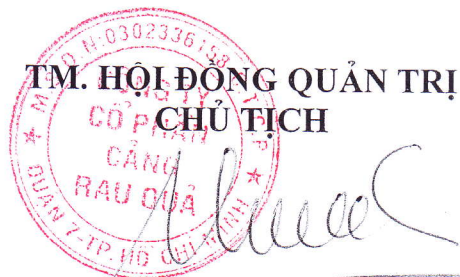 TM. HỘI ĐỒNG QUẢN TRỊ
CHỦ TỊCH
CÔNG TY
CỔ PHẦN
CẢNG
RAU QUẢ
QUẬN 7-TP. HỒ CHÍ MINH